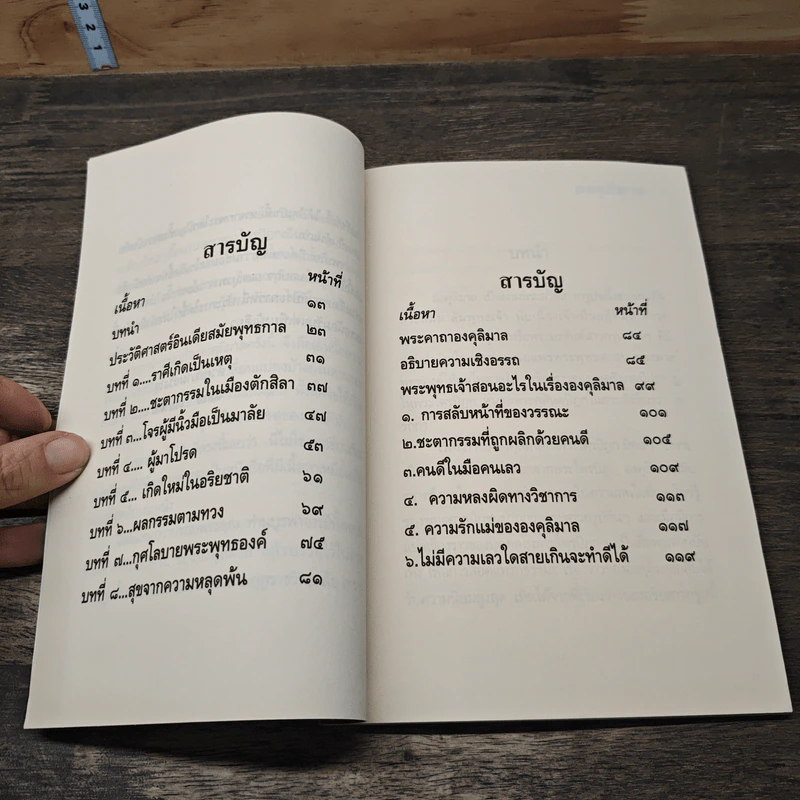 3 2 1
สารบัญ
เนื้อหา หน้าที่
บทนำ ๑๓
ประวัติศาสตร์อินเดียสมัยพุทธกาล ๒๓
บทที่ ๑....ราศีเกิดเป็นเหตุ ๓๑
บทที่ ๒....ชะตากรรมในเมืองตักสิลา ๓๗
บทที่ ๓...โจรผู้มีนิ้วมือเป็นมาลัย ๔๗
บทที่ ๔.... ผู้มาโปรด ๕๓
บทที่ ๕... เกิดใหม่ในอริยชาติ ๖๑
บทที่ ๖...ผลกรรมตามทวง ๖๙
บทที่ ๗...กุศโลบายพระพุทธองค์ ๗๕
บทที่ ๘...สุขจากความหลุดพ้น ๘๑
สารบัญ
เนื้อหา หน้าที่
พระคาถาองคุลิมาล ๘๔
อธิบายความเชิงอรรถ ๘๕
พระพุทธเจ้าสอนอะไรในเรื่ององคุลิมาล ๙๙
๑. การสลับหน้าที่ของวรรณะ ๑๐๑
๒.ชะตากรรมที่ถูกผลิกด้วยคนดี ๑๐๕
๓.คนดีในมือคนเลว ๑๐๙
๔. ความหลงผิดทางวิชาการ ๑๑๓
๕. ความรักแม่ขององคุลิมาล ๑๑๗
๖.ไม่มีความเลวใดสายเกินจะทำดีได้ ๑๑๙